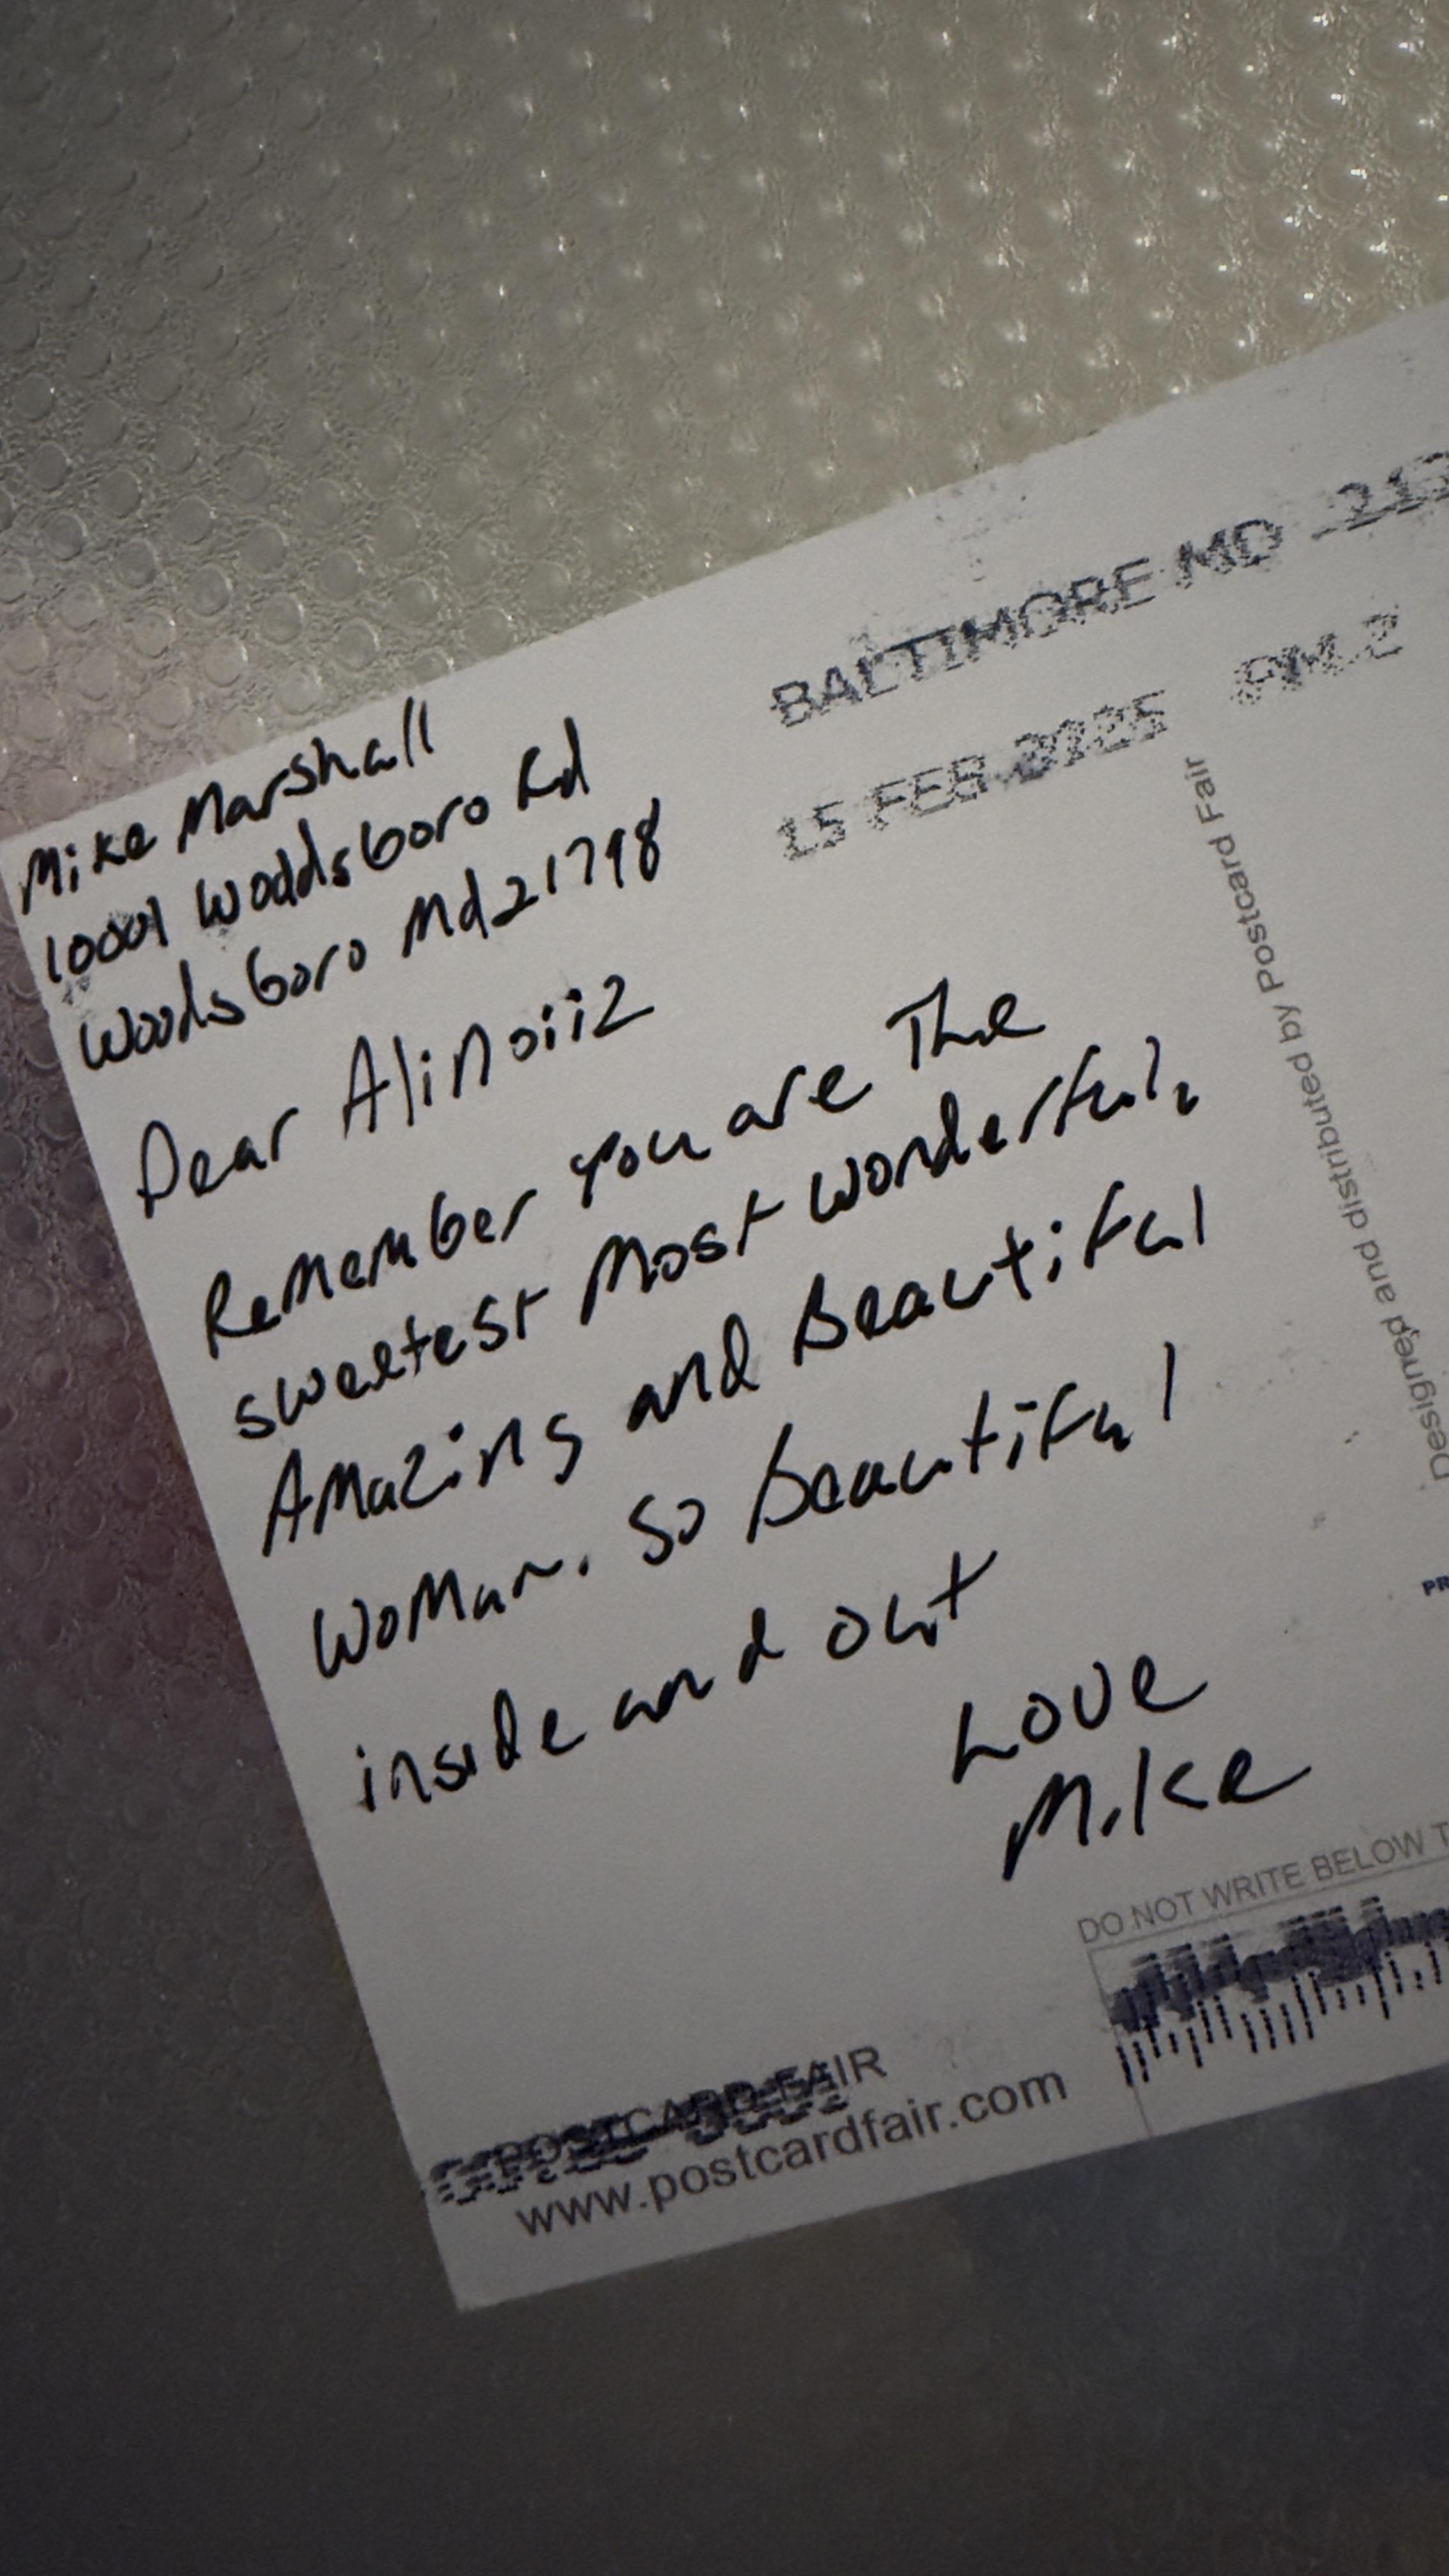 Mike Marshall
10001 Woodsboro Rd
Woodsboro Md 21798
BALTIMORE MD 212
15 FEB 2025 PM 2
Dear Alinoiiz
Remember you are The
sweetest Most wonderful,
Amazing and Beautiful
Woman. So Beautiful
inside and out
Love
Mike
Designed and distributed by Postcard Fair
PR
DO NOT WRITE BELOW T
POSTCARD FAIR
www.postcardfair.com